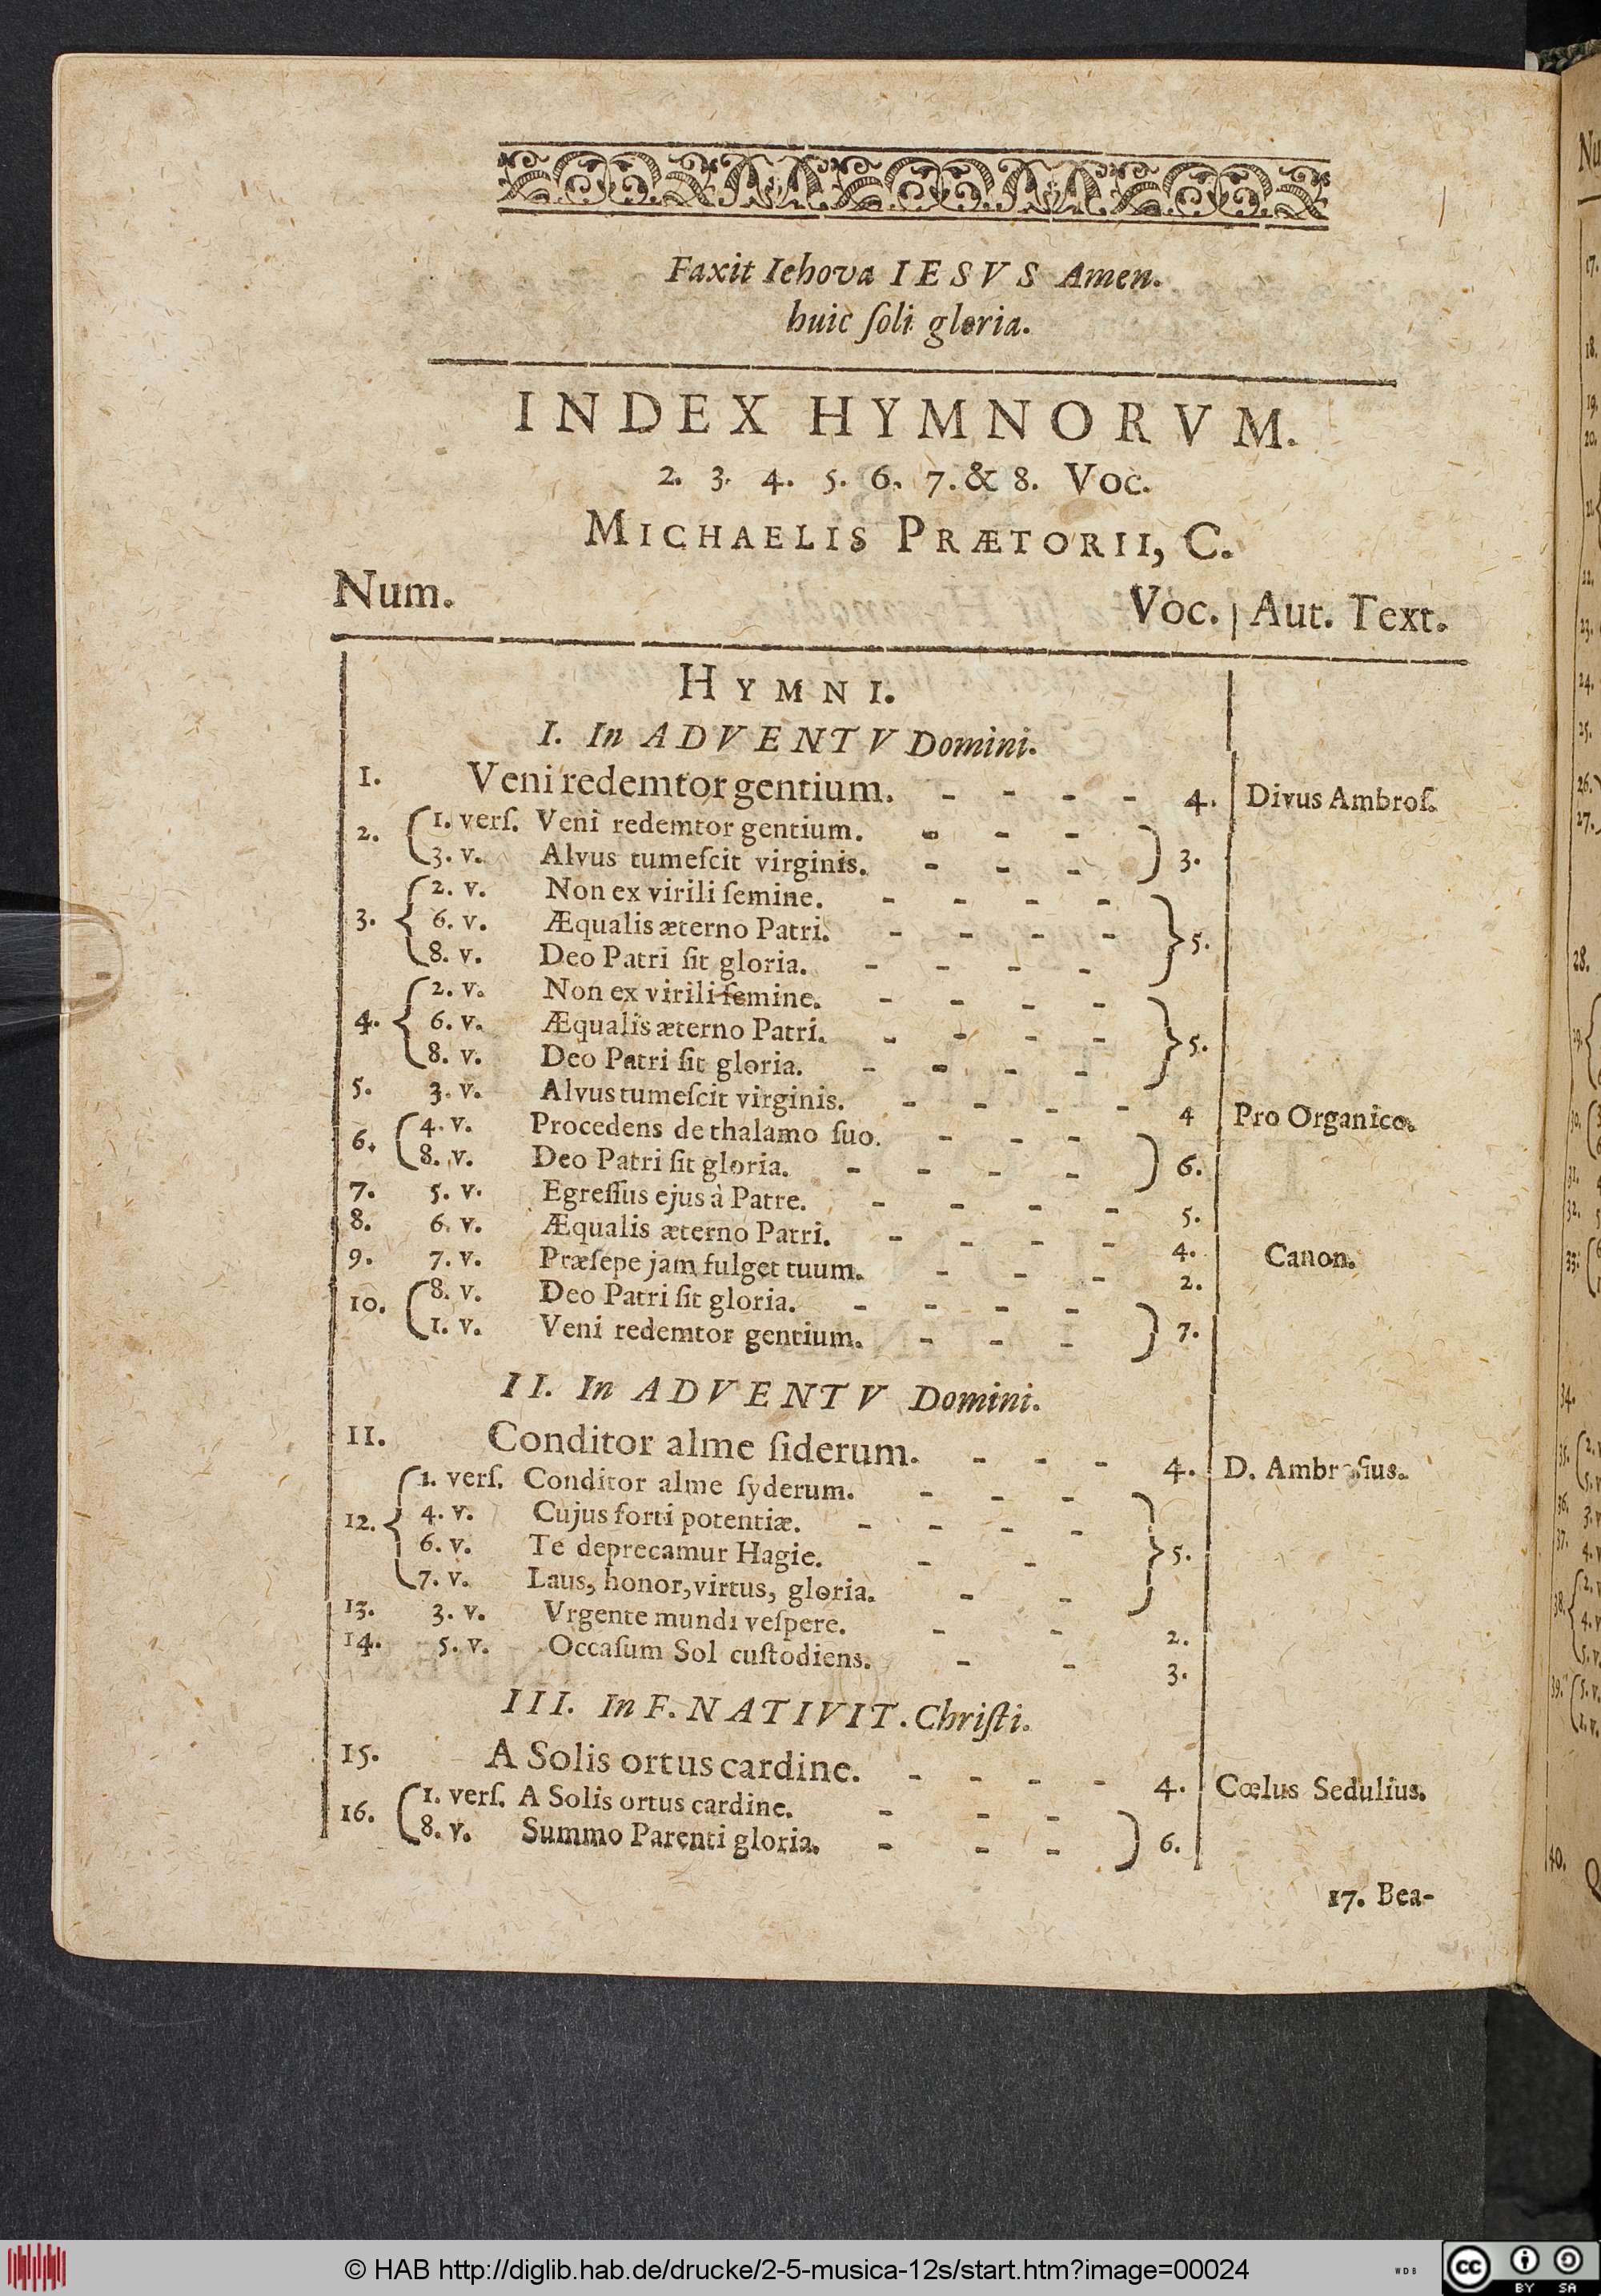 Faxit Iehova IESVS Amen.
huic ſoli gloria.
INDEX HYMNORVM.
2. 3. 4. 5. 6. 7. & 8. Voc.
MICHAELIS PRÆTORII, C.
Num. Voc. | Aut. Text.
HYMNI.
I. In ADVENTV Domini.
1. Veni redemtor gentium. - - - - 4. Divus Ambroſ.
2. 1. verſ. Veni redemtor gentium. - - -
3. v. Alvus tumeſcit virginis. - - - 3.
2. v. Non ex virili ſemine. - - - -
3. 6. v. Æqualis æterno Patri. - - - - 5.
8. v. Deo Patri ſit gloria. - - - -
2. v. Non ex virili ſemine. - - - -
4. 6. v. Æqualis æterno Patri. - - - - 5.
8. v. Deo Patri ſit gloria. - - - -
5. 3. v. Alvus tumeſcit virginis. - - - - 4 Pro Organico.
6. 4. v. Procedens de thalamo ſuo. - - -
8. v. Deo Patri ſit gloria. - - - - 6.
7. 5. v. Egreſſus ejus à Patre. - - - - 5.
8. 6. v. Æqualis æterno Patri. - - - - 4. Canon.
9. 7. v. Præſepe jam fulget tuum. - - - 2.
10. 8. v. Deo Patri ſit gloria. - - - -
1. v. Veni redemtor gentium. - - - 7.
II. In ADVENTV Domini.
11. Conditor alme ſiderum. - - - 4. D. Ambroſius.
1. verſ. Conditor alme ſyderum. - - -
12. 4. v. Cujus forti potentiæ. - - - -
6. v. Te deprecamur Hagie. - - 5.
7. v. Laus, honor, virtus, gloria. - -
13. 3. v. Vrgente mundi veſpere. - - 2.
14. 5. v. Occaſum Sol cuſtodiens. - - 3.
III. In F. NATIVIT. Chriſti.
15. A Solis ortus cardine. - - - - 4. Cœlus Sedulius.
16. 1. verſ. A Solis ortus cardine. - - -
8. v. Summo Parenti gloria. - - - 6.
17. Bea-
© HAB http://diglib.hab.de/drucke/2-5-musica-12s/start.htm?image=00024
WDB
cc BY SA